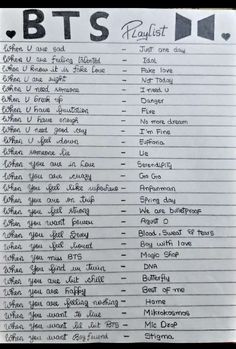 BTS Playlist
When U are sad - Just one day
When U are feeling talented - Idol
When U know it is fake love - Fake love
When U are right - Not Today
When U need someone - I need U
When U break up - Danger
When U have frustration - Fire
When U have enough - No more dream
When U need good - I'm Fine
When U feel down - Euphoria
When someone lie - Lie
When you are in love - Serendipity
When you are crazy - Go Go
When you feel like superhero - Anpanman
When you are on trip - Spring day
When you feel strong - We are bulletproof
When you want power - August D
When you feel - Blood, Sweat & Tears
When you feel loved - Boy with love
When you miss BTS - Magic Shop
When you find ur twin - DNA
When you are - Butterfly
When you are happy - Best of me
When you are feeling nothing - Home
When you want to live - Mikrokosmos
When you want be hit BTS - Mic Drop
When you want Boyfriend - Stigma